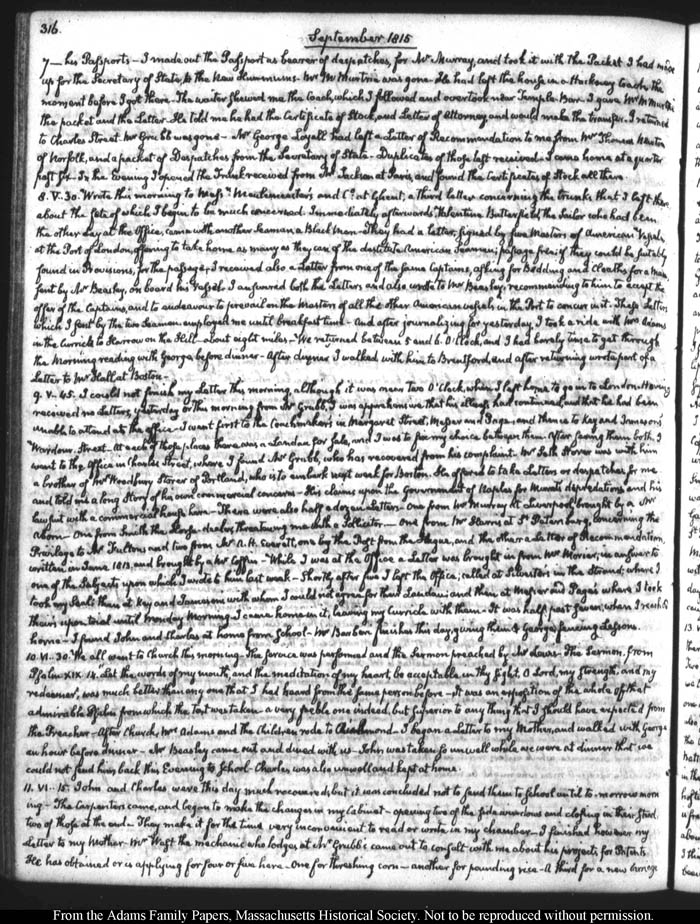 316.
September 1815
7 — his Passports — I made out the Passport as bearer of despatches, for Mr. Murray, and took it with the Packet I had made
up for the Secretary of State, to the New Hummums. Mr McMurtrie was gone. He had left the house in a Hackney Coach, the
moment before I got there. The waiter shewed me the Coach, which I followed and overtook near Temple-Bar. I gave Mr McMurtrie
the packet and the Letter. He told me he had the Certificate of Stock, and Letter of Attorney, and would make the transfer. I returned
to Charles Street. Mr Grubb was gone — Mr George Loyall had left a Letter of Recommendation to me from Mr Thomas Newton
of Norfolk, and a packet of Despatches from the Secretary of State — Duplicates of those last received. I came home at a quarter
past five. In the Evening I opened the Trunk received from Mr Jackson at Paris, and found the Certificates of Stock all there.
8. V. 30. Wrote this morning to Messrs Meulemeester and Co. at Ghent, a third letter concerning the trunks that I left there
about the fate of which I begin to be much concerned. Immediately afterwards Valentine Butterfield, the Sailor who had been
the other day at the Office, came with another Seaman a Black man — They had a letter, signed by five Masters of American Vessels
at the Port of London, offering to take home as many as they can of the destitute American Seamen; passage free; if they could be suitably
found in Provisions, for the passage. I received also a Letter from one of the same Captains, asking for Bedding and Cloaths for a man,
sent by Mr Beasley, on board his Vessel. I answered both the Letters and also wrote to Mr Beasley, recommending to him to accept the
offer of the Captains, and to endeavour to prevail on the Masters of all the other American vessels in the Port to concur in it. These Letters
which I sent by the two Seamen employed me until breakfast time — And after journalizing for yesterday, I took a ride with Mrs Adams
in the Curricle to Harrow on the Hill — about eight miles — We returned between 5 and 6. O'Clock, and I had barely time to get through
the Morning reading with George before dinner — After dinner I walked with him to Brentford, and after returning wrote part of a
Letter to Mr Hall at Boston —
9. V. 45. I could not finish my Letter this morning although it was near two O'Clock, when I left home to go in to London. Having
received no Letters, yesterday or this morning from Mr Grubb, I was apprehensive that his illness had continued, and that he had been
unable to attend at the office. I went first to the Coachmakers in Margaret Street, Messer and Page, and thence to Key and Jameson's
Wardour Street — At each of those places there was a Landau for sale, and I was to fix my choice between them. After seeing them both, I
went to the Office in Charles Street, where I found Mr Grubb, who has recovered from his complaint. Mr Seth Storer was with him
a brother of Mr Woodbury Storer of Portland, who is to embark next week for Boston. He offered to take Letters or despatches for me
and told me a long Story of his own commercial concerns — His claims upon the Government of Naples for Murat's depredations and his
lawsuit with a commercial house here — There were also half a dozen Letters — One from Mr Murray at Liverpool, brought by a Mr
Aborn — One from Smith the Horse-dealer, threatening me with a Sollicitor — One from Mr Harris at St Petersburg, concerning the
Privilege to Mr Fulton; and two from Mr A. H. Everett, one by the Post from the Hague, and the other a Letter of Recommendation,
written in June 1813, and brought by a Mr Coffin — While I was at the Office a Letter was brought in from Mr Morier, in answer to
one of the Subjects upon which I wrote to him last week — Shortly after five I left the Office; called at Silvester's in the Strand; where I
took my Seals then at Key and Jameson, with whom I could not agree for their Landau; and then at Messer and Page's where I took
theirs upon trial until Monday Morning. I came home in it, leaving my Curricle with them — It was half past seven, when I reached
home — I found John and Charles at home from School — Mr Barber finishes this day, giving them & George fencing Lessons.
10. VI.. 30. We all went to Church this morning. The Service was performed and the Sermon preached by Mr Lewis. The Sermon, from
Psalm XIX. 14. "Let the words of my mouth, and the meditation of my heart, be acceptable in thy sight, O Lord, my strength, and my
redeemer", was much better than any one that I had heard from the same person before — It was an exposition of the whole of that
admirable Psalm from which the Text was taken — a very feeble one indeed, but superior to any thing that I should have expected from
the Preacher — After Church, Mrs Adams and the Children rode to Richmond. I began a Letter to my Mother, and walked with George
an hour before dinner — Mr Beasley came out and dined with us — John was taken so unwell while we were at dinner that we
could not send him back this Evening to School — Charles was also unwell and kept at home.
11. VI.. 15. John and Charles were this day much recovered, but it was concluded not to send them to School until to-morrow morn
ing — The Carpenters came, and began to make the changes in my Cabinet — opening two of the side windows and closing in their stead
two of those at the end — They make it for the time very inconvenient to read or write in my chamber — I finished however my
Letter to my Mother — Mr West the mechanic who lodges at Mr Grubb's came out to consult with me about his projects for Patents
He has obtained or is applying for four or five here — One for threshing corn — another for pounding rice — A third for a new
From the Adams Family Papers, Massachusetts Historical Society. Not to be reproduced without permission.